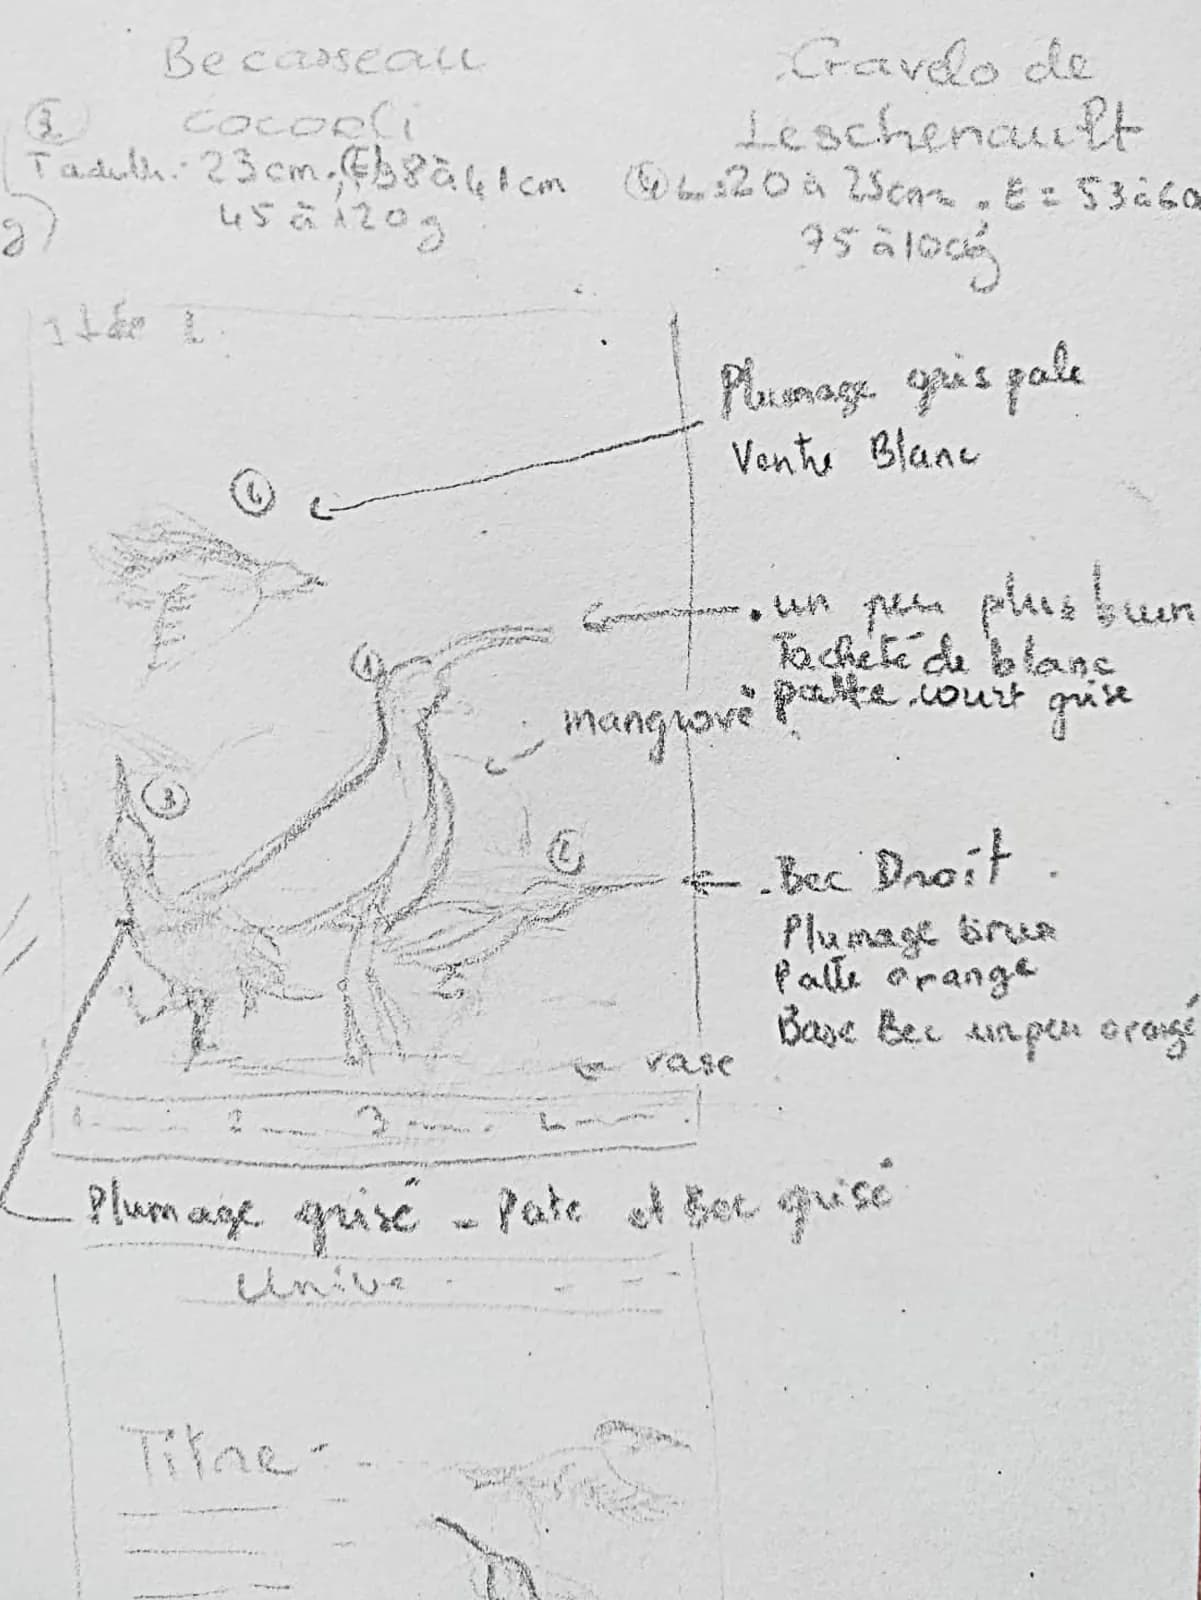 Becasseau
cocorli
③
T adulte: 23cm. (E) 38 à 41cm
45 à 120g
g)
Gravelo de
Leschenault
④ L = 20 à 25cm. E = 53 à 60
75 à 100g
Idée 1
Plumage gris pale
Ventre Blanc
④
. un peu plus brun
Tacheté de blanc
. patte court grise
①
mangrove
③
②
. Bec Droit
Plumage brun
Patte orange
Base Bec un peu orangé
vase
1 2 3 4
Plumage grisé - Pate et Bec grisé
Titre